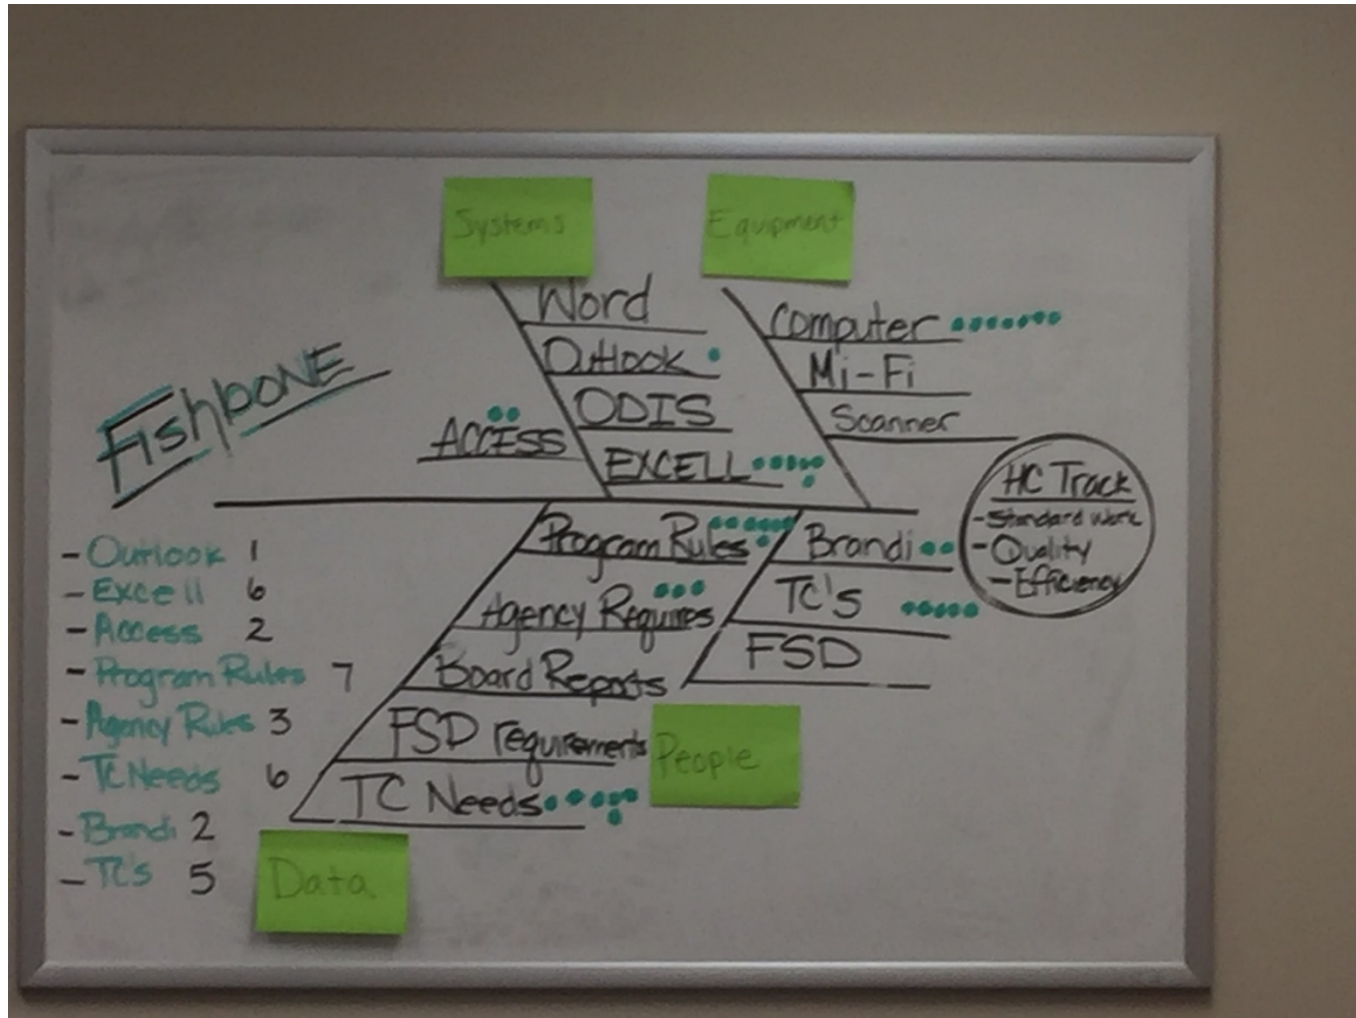 Systems
Equipment
Word
Outlook
ODIS
EXCELL
ACCESS
Computer
Mi-Fi
Scanner
FishBONE
HC Track
-Standard Work
-Quality
-Efficiency
Program Rules
Agency Requires
Board Reports
FSD requirements
TC Needs
Brandi
TC's
FSD
People
Data
-Outlook 1
-Excell 6
-Access 2
-Program Rules 7
-Agency Rules 3
-TC Needs 6
-Brandi 2
-TC's 5